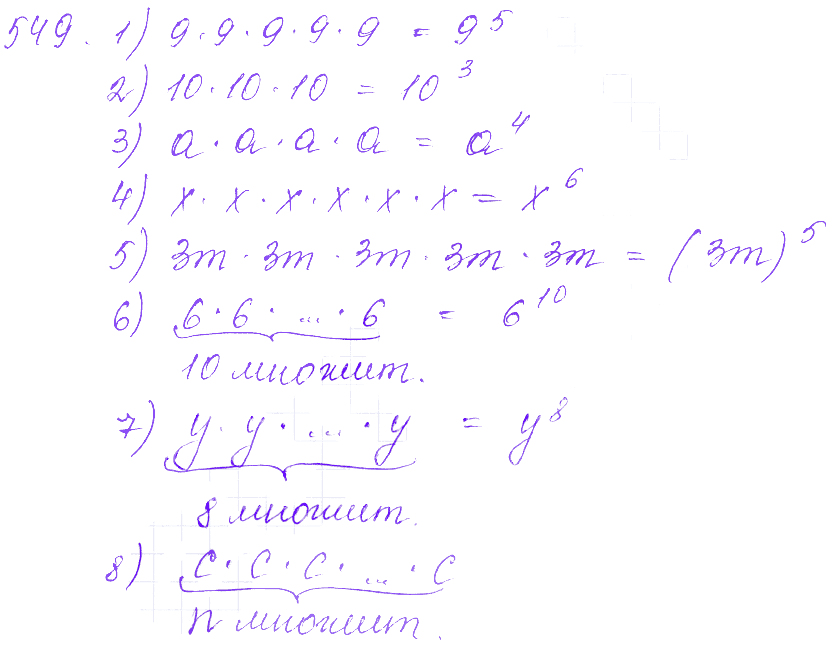 549. 1) 9 · 9 · 9 · 9 · 9 = 9⁵
2) 10 · 10 · 10 = 10³
3) a · a · a · a = a⁴
4) x · x · x · x · x · x = x⁶
5) 3m · 3m · 3m · 3m · 3m = (3m)⁵
6) 6 · 6 · ... · 6 = 6¹⁰
10 множит.
7) y · y · ... · y = y⁸
8 множит.
8) c · c · c · ... · c
n множит.